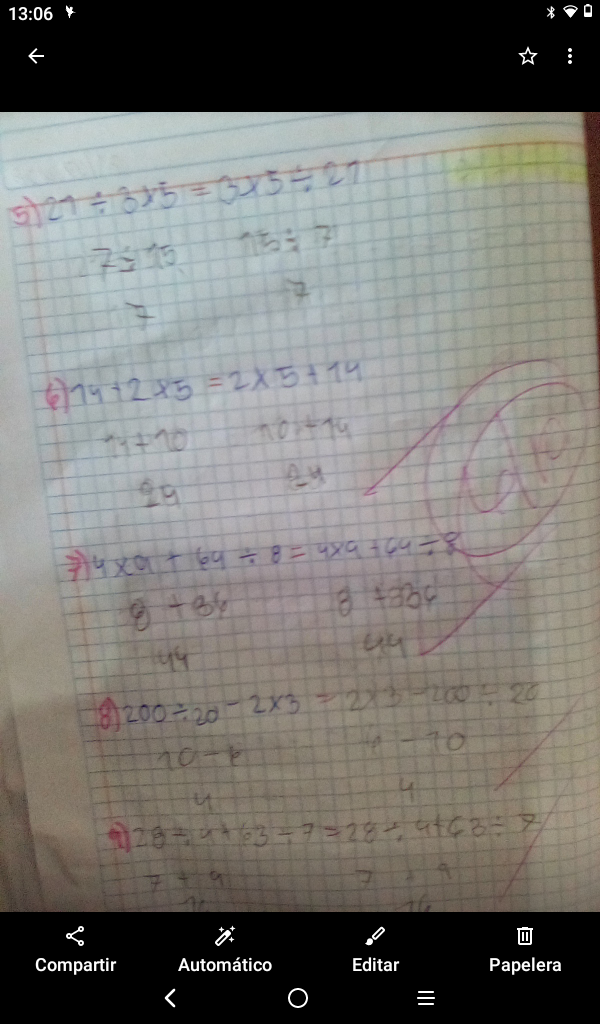 13:06
5) 21 ÷ 3x5 = 3x5 ÷ 21
7 ÷ 15 15 ÷ 7
7 7
6) 14 + 2 x 5 = 2 x 5 + 14
14 + 10 10 + 14
24 24
7) 4 x 9 + 64 ÷ 8 = 4x9 + 64 ÷ 8
8 + 36 8 + 36
44 44
8) 200 ÷ 20 - 2x3 = 2x3 - 200 ÷ 20
10 - 6 - 10
4 4
9) 28 ÷ 4 + 63 ÷ 7 = 28 ÷ 4 + 63 ÷ 7
7 + 9 7 + 9
16 16
Compartir
Automático
Editar
Papelera